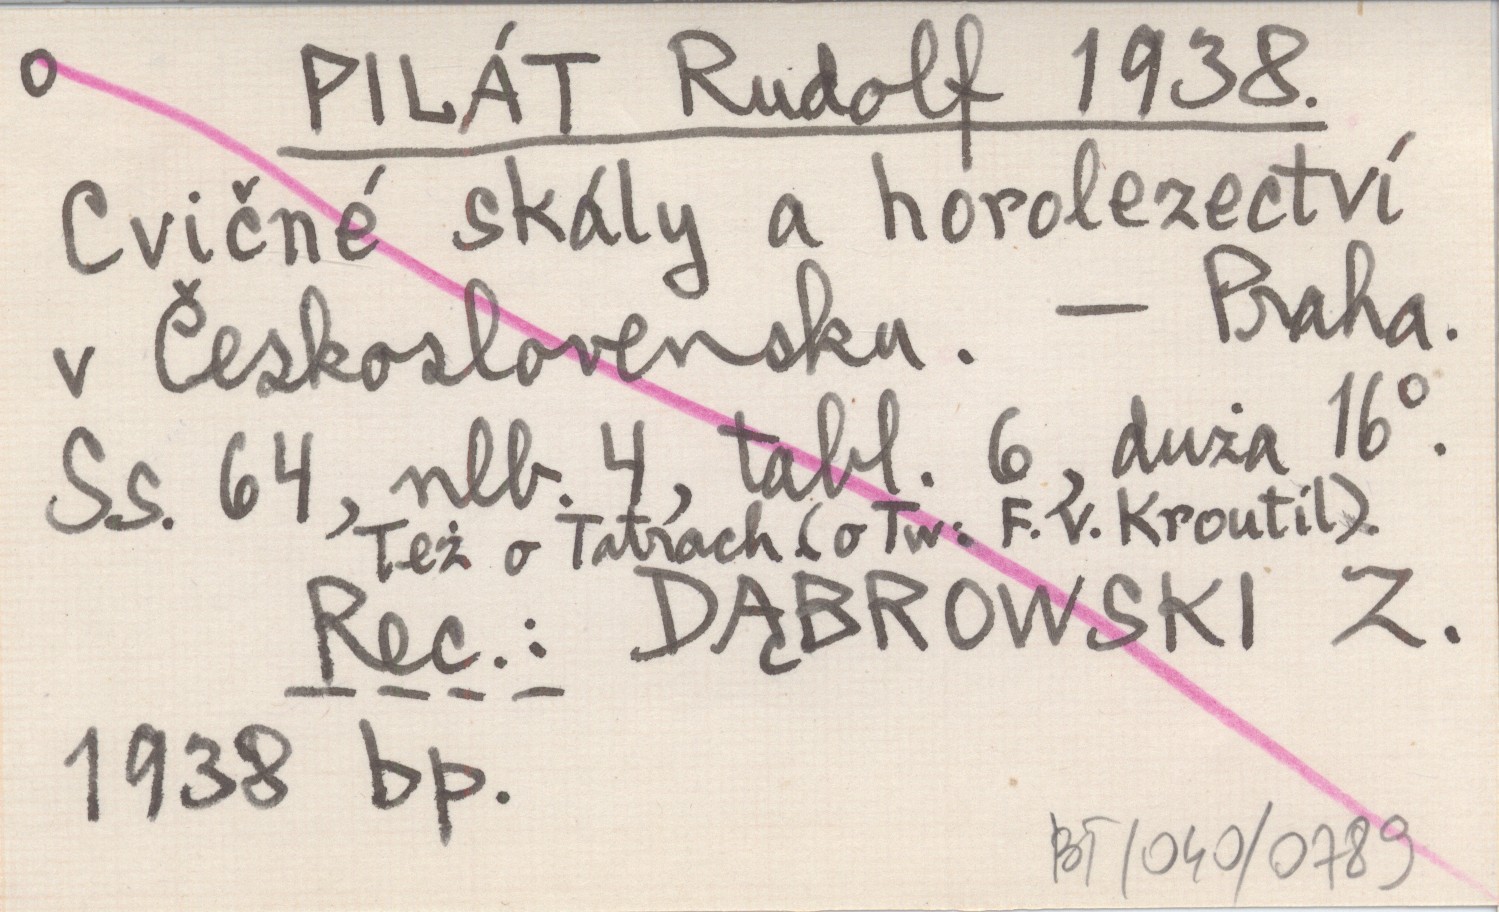 o PILÁT Rudolf 1938.
Cvičné skály a horolezectví
v Československu. — Praha.
Ss. 64, nlb. 4, tabl. 6, duża 16°.
Też o Tatrach (o Tw: F. V. Kroutil).
Rec.: DĄBROWSKI Z.
1938 bp.
BT/040/0789